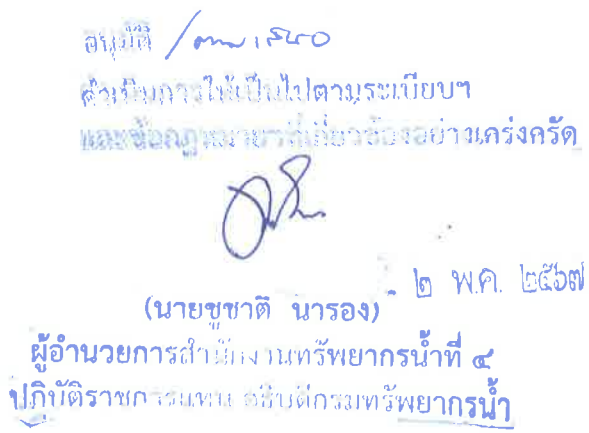 อนุมัติ /ตามเสนอ
ดำเนินการให้เป็นไปตามระเบียบฯ
และข้อกฎหมายที่เกี่ยวข้องอย่างเคร่งครัด
(นายชูชาติ นารอง)
- ๒ พ.ค. ๒๕๖๗
ผู้อำนวยการสำนักงานทรัพยากรน้ำที่ ๔
ปฏิบัติราชการแทน อธิบดีกรมทรัพยากรน้ำ